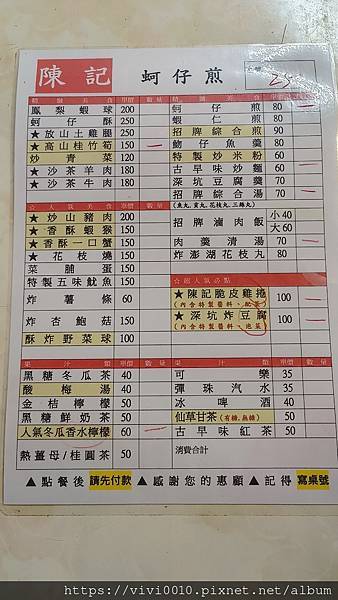 陳記 蚵仔煎
精緻美食 單價 數量
鳳梨蝦球 200
蚵仔酥 250
★放山土雞腿 250
★高山桂竹筍 150 一
炒青菜 120
★沙茶羊肉 180
★沙茶牛肉 180
蚵仔煎 80 一
蝦仁煎 80
招牌綜合煎 90
魩仔魚羹 80
特製炒米粉 60
古早味炒麵 60 一
深坑豆腐羹 70
招牌綜合湯 70 一
(魚丸,貢丸,花枝丸,三絲丸)
☆人氣美食 單價 數量
★炒山豬肉 200
★香酥蝦猴 150
★香酥一口蟹 150
★花枝燒 150
菜脯蛋 150
特製五味魷魚 150
炸薯條 60
炸杏鮑菇 150
酥炸野菜球 100
招牌滷肉飯 小40 大60
肉羹清湯 70 一
炸澎湖花枝丸 80
☆超人氣必點
★陳記脆皮雞捲 100 一
(內含特製醬料、配菜)
★深坑炸豆腐 100 一
(內含特製醬料、泡菜)
果汁類 單價 數量
黑糖冬瓜茶 40
酸梅湯 40
金桔檸檬 50
黑糖鮮奶茶 50
人氣冬瓜香水檸檬 60 一
熱薑母/桂圓茶 50
果汁類 單價 數量
可樂 35
彈珠汽水 35
冰啤酒 40
仙草甘茶(有糖.無糖) 50
古早味紅茶 50
消費合計
▲點餐後請先付款 ▲感謝您的惠顧 ▲記得寫桌號
https://vivi0010.pixnet.net/album